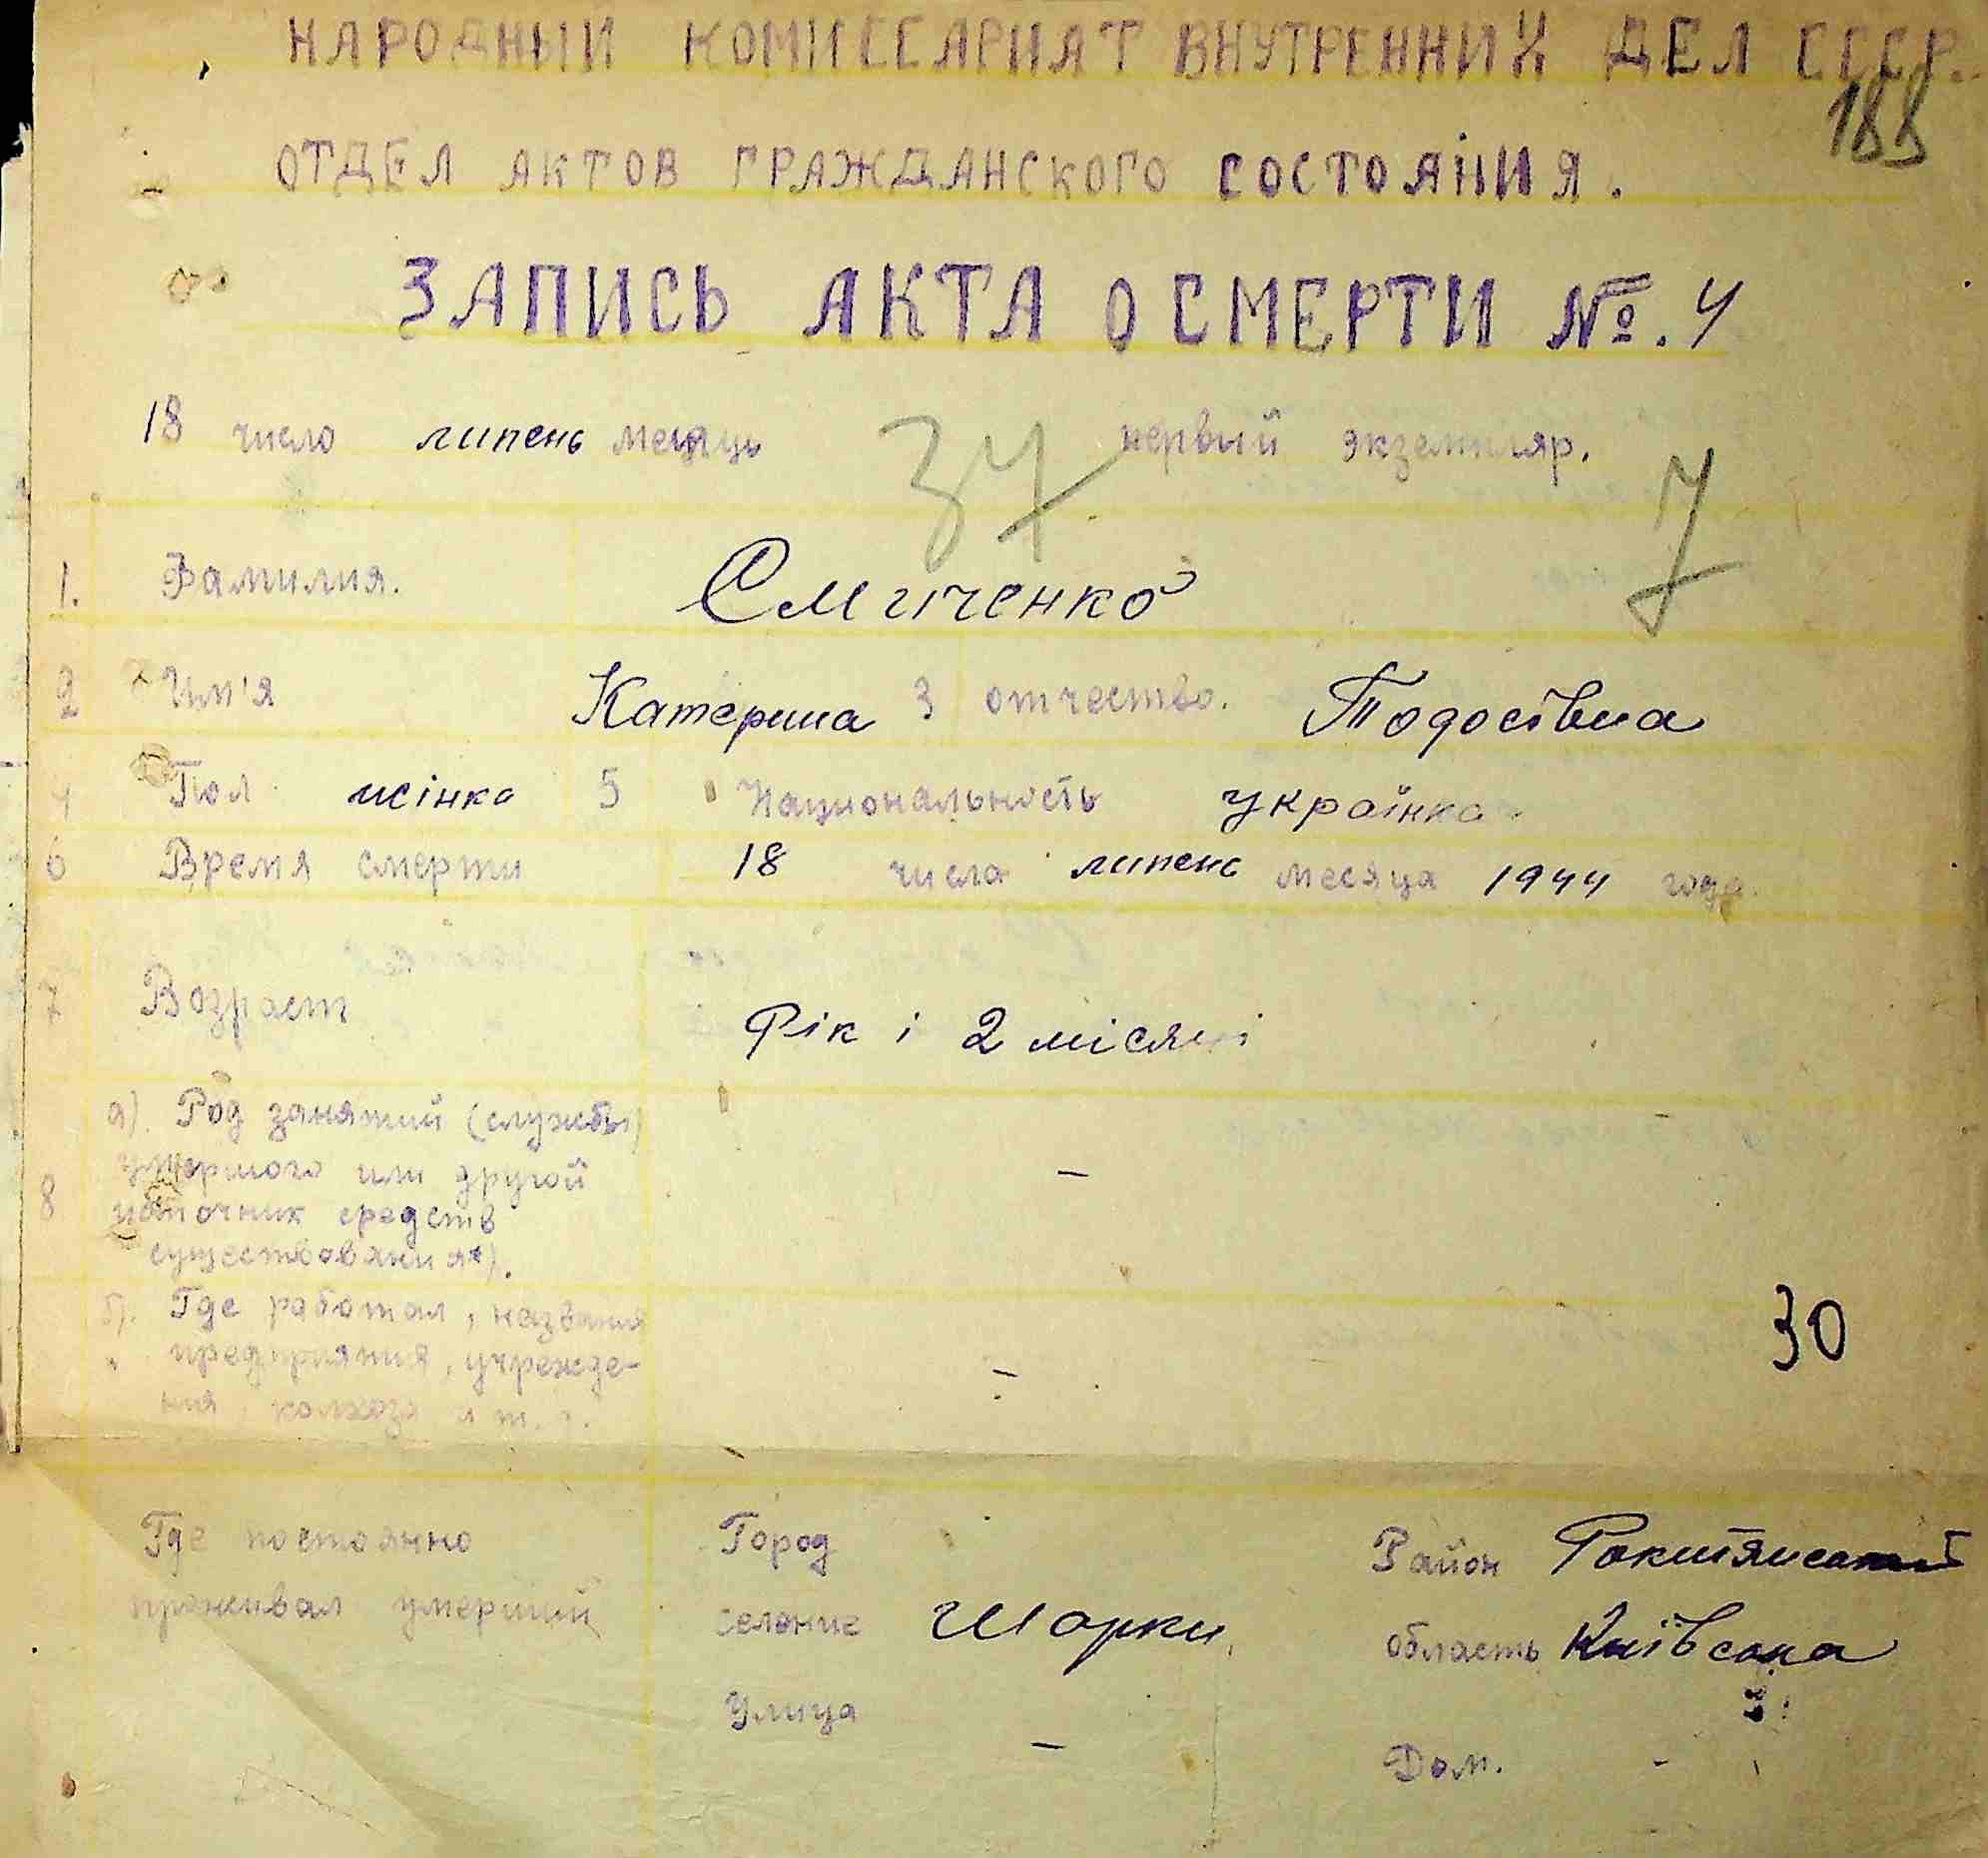 НАРОДНЫЙ КОМИССАРИАТ ВНУТРЕННИХ ДЕЛ СССР.
188
ОТДЕЛ АКТОВ ГРАЖДАНСКОГО СОСТОЯНИЯ.
ЗАПИСЬ АКТА О СМЕРТИ №. 4
18 число липень месяць 37 первый экземпляр. 7
1. Фамилия. Смиченко
2 Им'я Катерина 3 отчество. Тодосівна
4 Пол жінка 5 Национальность українка
6 Время смерти 18 числа липень месяца 1944 года.
7 Возраст Рік і 2 місяці
а). Род занятий (службы)
умершого или другой —
8 источник средств
существования*).
б). Где работал, названия 30
предприятия, учрежде- —
ния, колхоза и т. п.
Где постоянно Город Район Рокитянський
проживал умерший селение Шарки, область Київська
Улица —
Дом. -